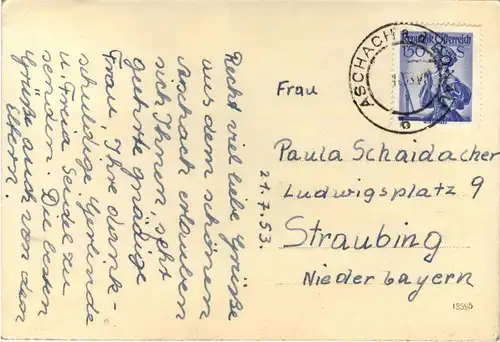 Recht viel liebe Grüße
aus dem schönen
Aschach erlauben
sich Ihnen, sehr
geehrte gnädige
Frau, Ihre dank-
schuldige Gerlinde
u. Freia Seidel zu
senden. Die besten
Grüße auch von den
Eltern.
21.7.53.
Republik Österreich
1.50 S
ASCHACH a. d. DONAU
b
Frau
Paula Schaidacher
Ludwigsplatz 9
Straubing
Niederbayern